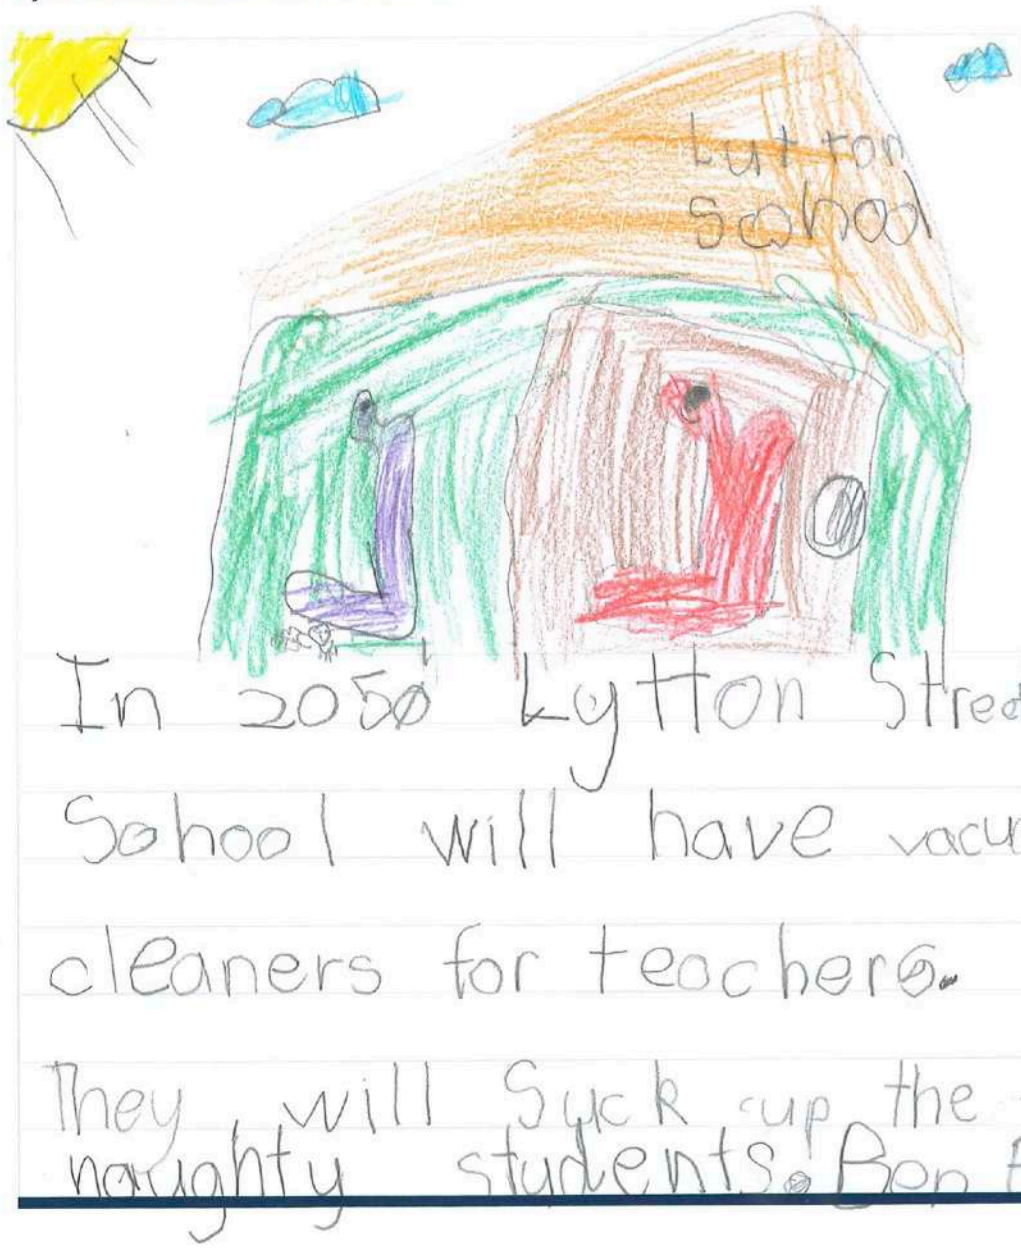 Lutton
School
In 2050 Lytton Stree
School will have vacu
cleaners for teachers.
They will Suck up the
naughty students. Ben